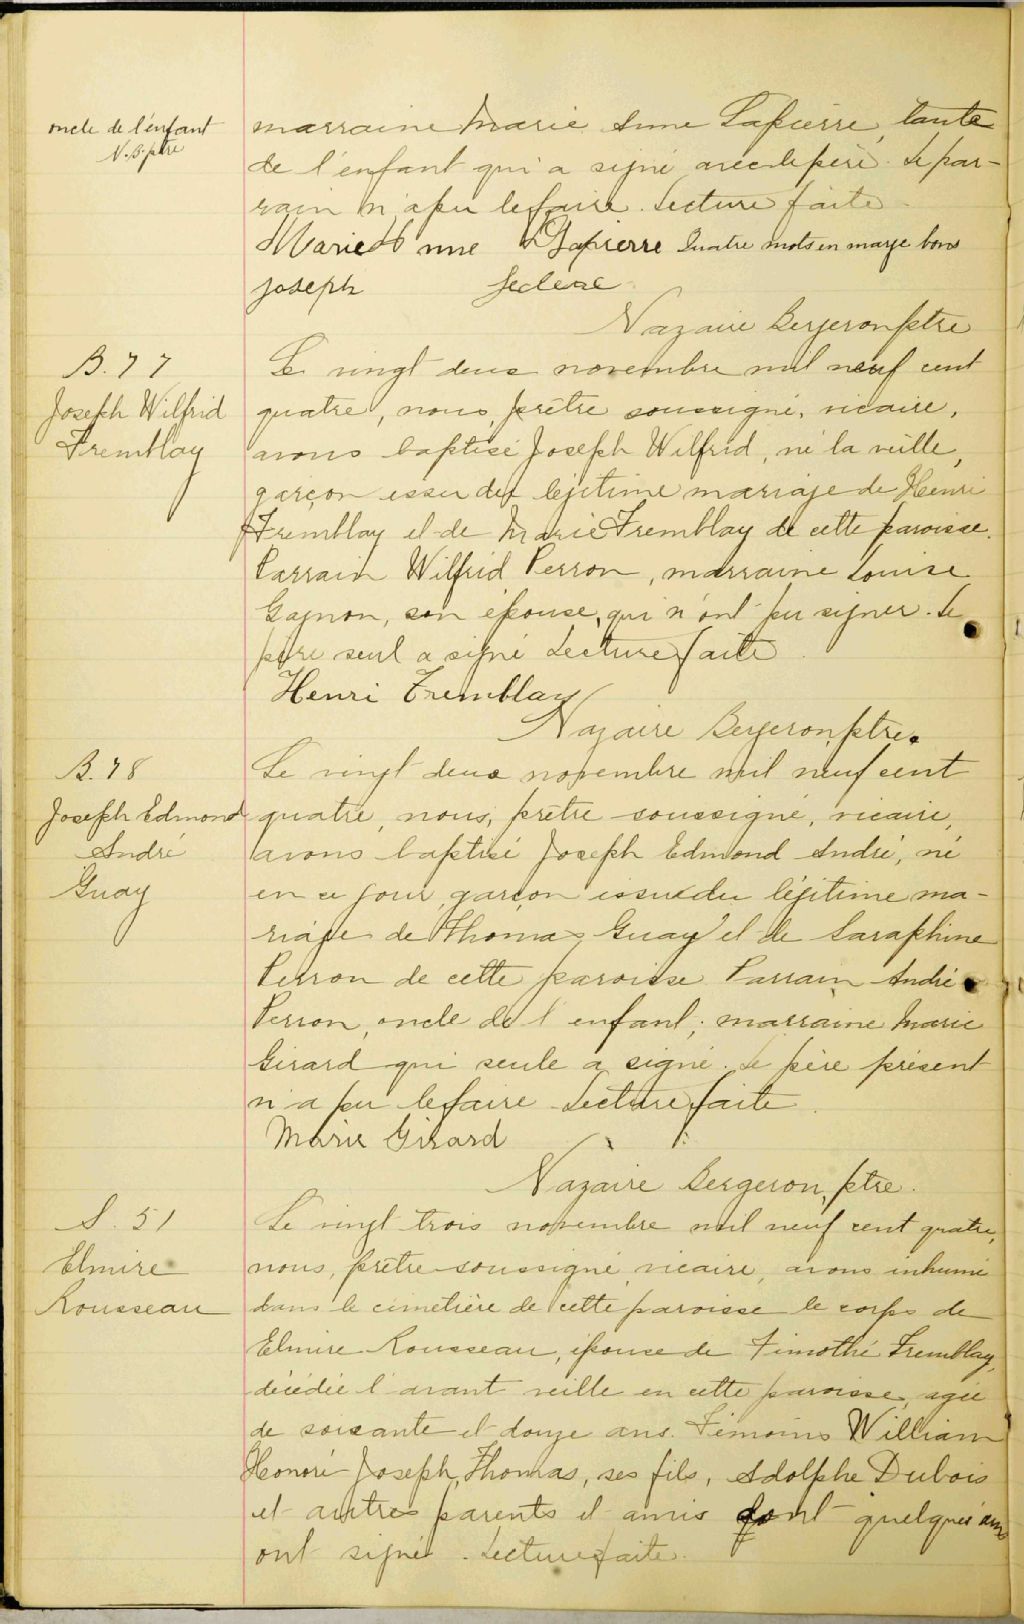 oncle de l'enfant
N.B. ptre
marraine Marie Anne Lapierre, tante
de l'enfant qui a signé avec le père. Le par-
rain n'a pu le faire. Lecture faite.
Marie Anne Lapierre Quatre mots en marge bons
Joseph Leclerc
Nazaire Bergeron ptre
B. 77
Joseph Wilfrid
Tremblay
Le vingt deux novembre mil neuf cent
quatre, nous, prêtre soussigné, vicaire,
avons baptisé Joseph Wilfrid, né la veille,
garçon issu du légitime mariage de Henri
Tremblay et de Marie Tremblay de cette paroisse.
Parrain Wilfrid Perron, marraine Louise
Gagnon, son épouse, qui n'ont pu signer. Le
père seul a signé Lecture faite.
Henri Tremblay
Nazaire Bergeron, ptre.
B. 78
Joseph Edmond
André
Guay
Le vingt deux novembre mil neuf cent
quatre, nous, prêtre soussigné, vicaire,
avons baptisé Joseph Edmond André, né
en ce jour, garçon issu du légitime ma-
riage de Thomas Guay et de Saraphine
Perron de cette paroisse. Parrain André
Perron, oncle de l'enfant; marraine Marie
Girard qui seule a signé. Le père présent
n'a pu le faire Lecture faite.
Marie Girard
Nazaire Bergeron, ptre.
S. 51
Elmire
Rousseau
Le vingt trois novembre mil neuf cent quatre,
nous, prêtre soussigné, vicaire, avons inhumé
dans le cimetière de cette paroisse le corps de
Elmire Rousseau, épouse de Timothé Tremblay,
décédée l'avant veille en cette paroisse, agée
de soixante et douze ans. Témoins William
Honoré Joseph, Thomas, ses fils, Adolphe Dubois
et autres parents et amis dont quelques uns
ont signé. Lecture faite.